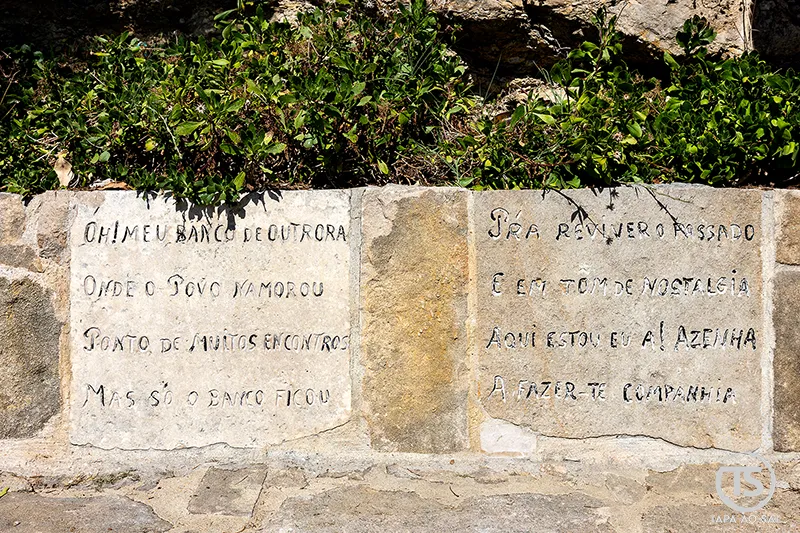 ÓH! MEU BANCO DE OUTRORA
ONDE O POVO NAMOROU
PONTO, DE MUITOS ENCONTROS
MAS SÓ O BANCO FICOU
P'RA REVIVER O PASSADO
E EM TÔM DE NOSTALGIA
AQUI ESTOU EU A! AZENHA
A FAZER-TE COMPANHIA
TS
TAPA AO SAL